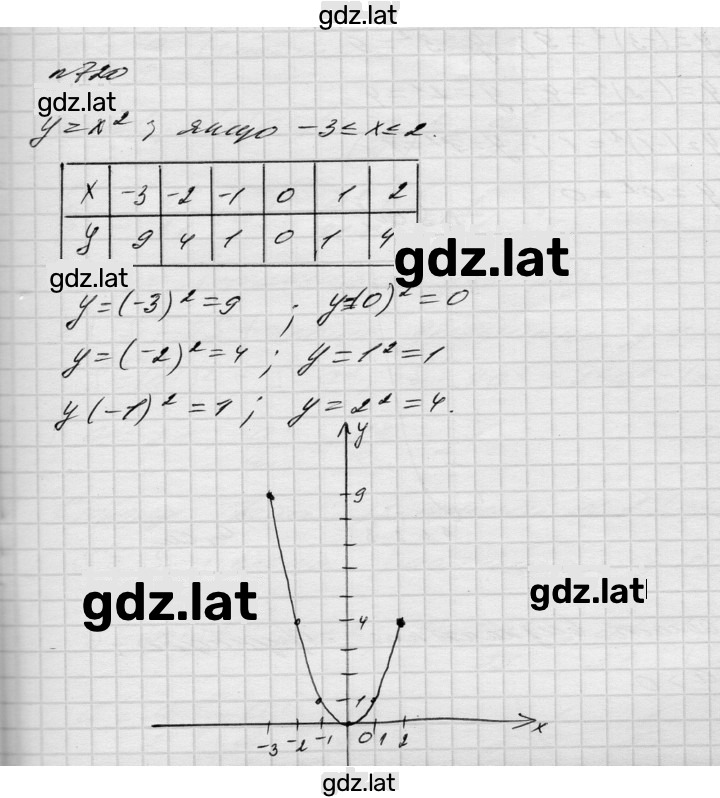 gdz.lat
n720
gdz.lat
y=x² ; якщо -3≤x≤2.
x -3 -2 -1 0 1 2
y 9 4 1 0 1 4
gdz.lat
gdz.lat
y=(-3)²=9 ; y=(0)²=0
y=(-2)²=4 ; y=1²=1
y(-1)²=1 ; y=2²=4.
y
9
gdz.lat
gdz.lat
4
1
-3 -2 -1 0 1 2 x
gdz.lat